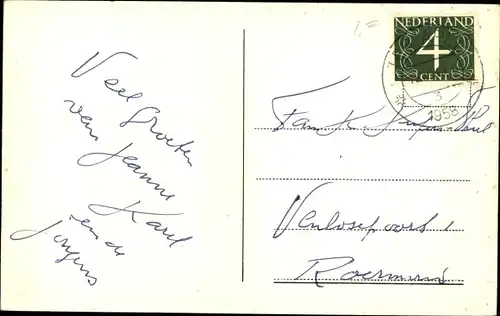 1,=
NEDERLAND
4
CENT
3
1958
Veel groeten
van Jeanne
Karel
en de
jongens
Fam.
Roermond